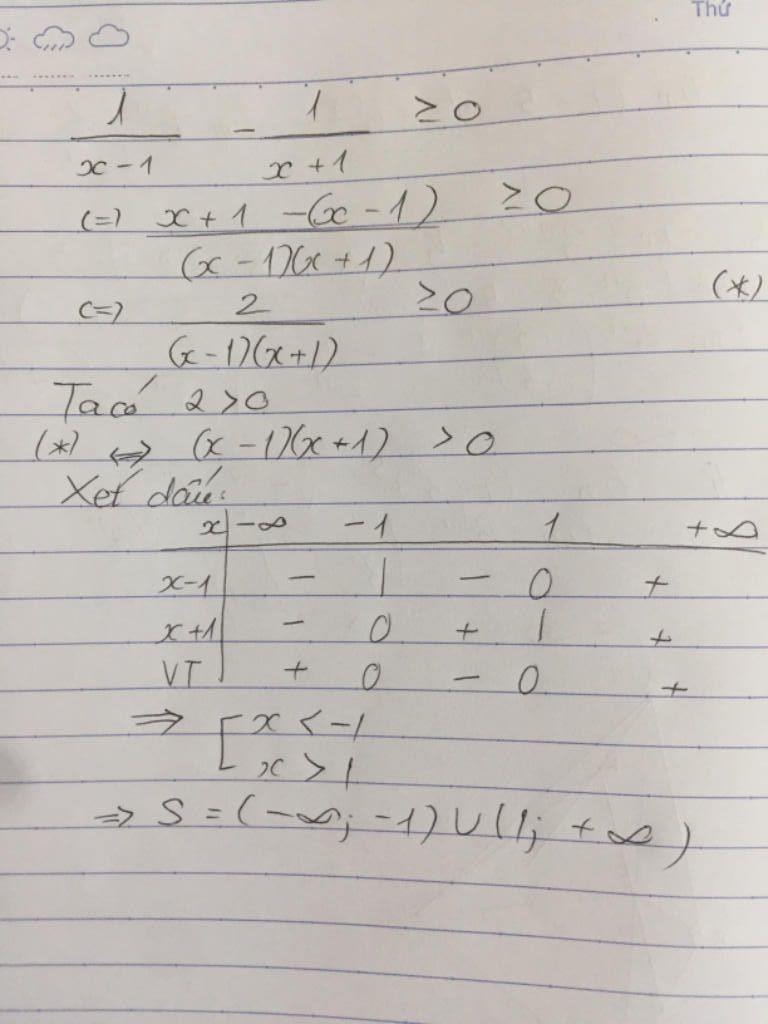 Thứ
1/(x-1) - 1/(x+1) ≥ 0
(=) (x+1 -(x-1))/((x-1)(x+1)) ≥ 0
(=) 2/((x-1)(x+1)) ≥ 0 (*)
Ta có 2 > 0
(*) ⇔ (x-1)(x+1) > 0
Xét dấu:
x | -∞ -1 1 +∞
x-1 | - | - 0 +
x+1 | - 0 + | +
VT | + 0 - 0 +
⇒ [ x < -1
x > 1
⇒ S = (-∞; -1) ∪ (1; +∞)